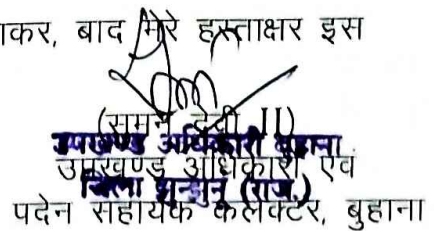 ाकर, बाद मेरे हस्ताक्षर इस
(सुमन देवी II)
उपखण्ड अधिकारी बुहाना
उपखण्ड अधिकारी एवं
जिला झुन्झुनू (राज.)
पदेन सहायक कलेक्टर, बुहाना